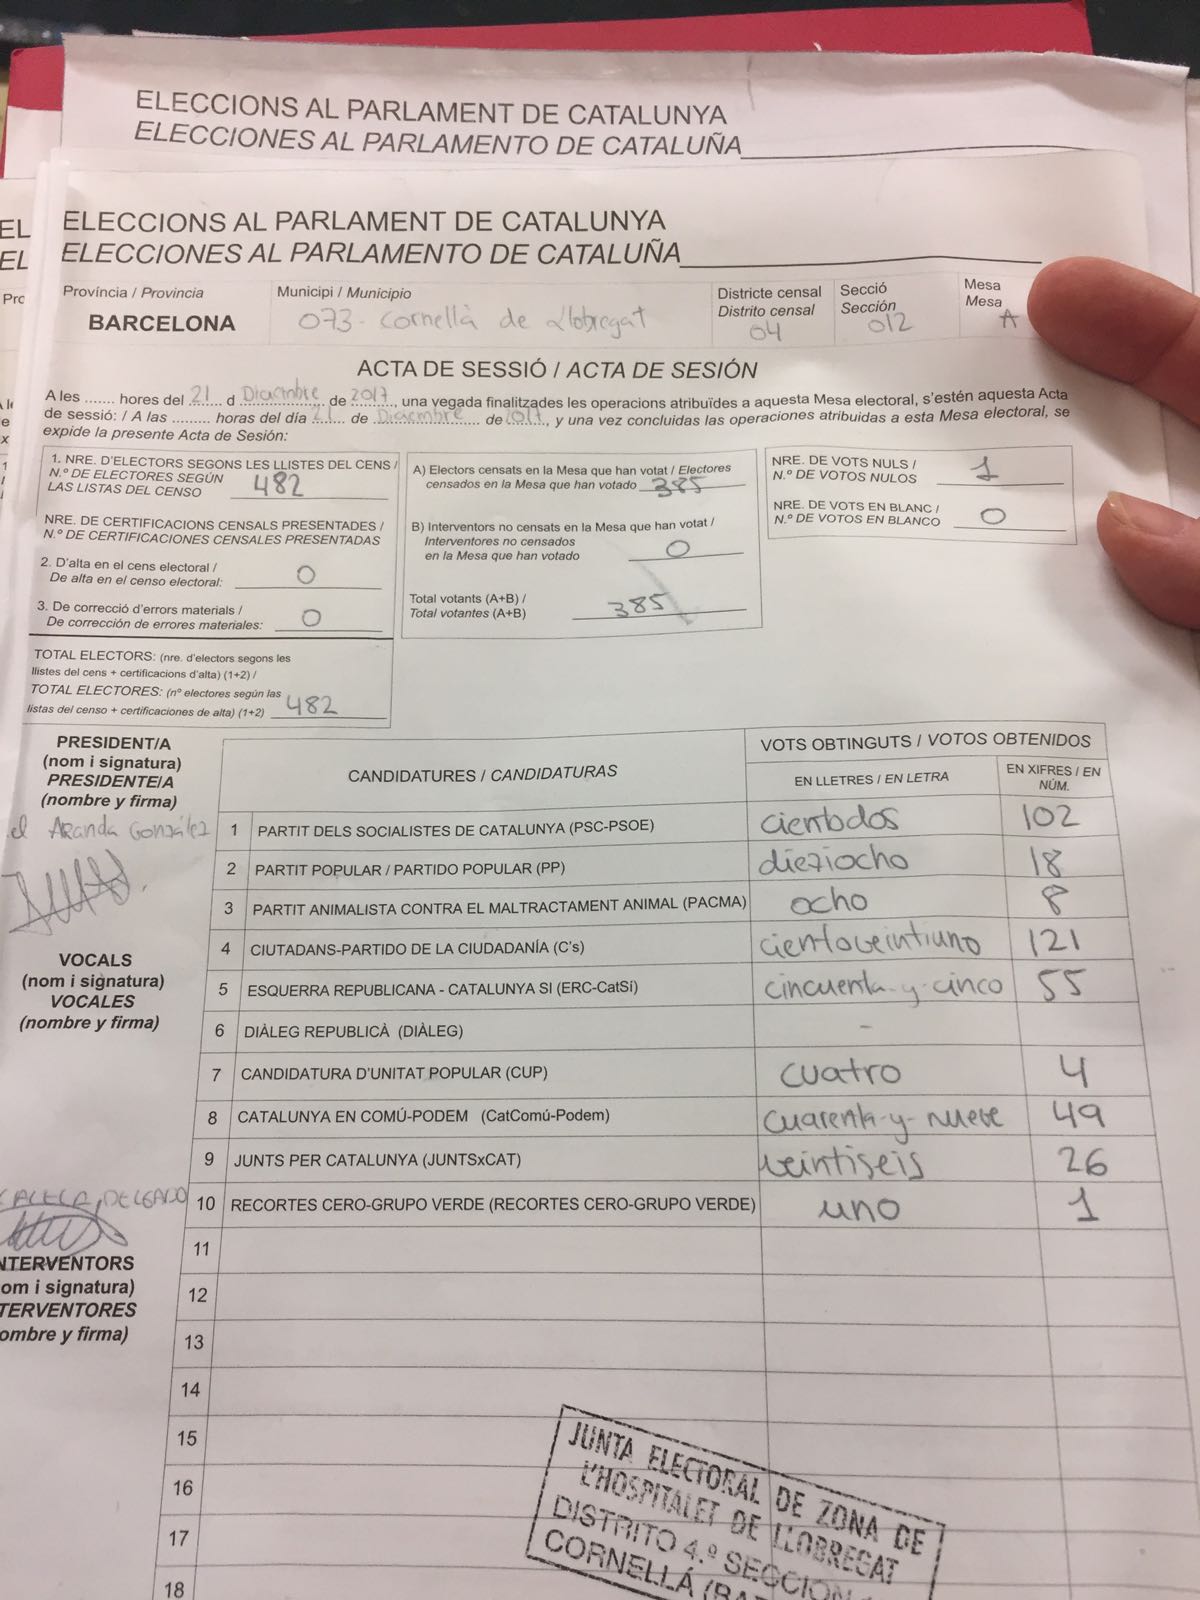 ELECCIONS AL PARLAMENT DE CATALUNYA
ELECCIONES AL PARLAMENTO DE CATALUÑA
EL
EL
Pro
ELECCIONS AL PARLAMENT DE CATALUNYA
ELECCIONES AL PARLAMENTO DE CATALUÑA
Província / Provincia
BARCELONA
Municipi / Municipio
073 - Cornellà de Llobregat
Districte censal
Distrito censal
04
Secció
Sección
012
Mesa
Mesa
A
ACTA DE SESSIÓ / ACTA DE SESIÓN
A les ....... hores del 21 d Diciembre de 2017, una vegada finalitzades les operacions atribuïdes a aquesta Mesa electoral, s'estén aquesta Acta
de sessió: / A las ......... horas del día 21 de Diciembre de 2017, y una vez concluidas las operaciones atribuidas a esta Mesa electoral, se
expide la presente Acta de Sesión:
1. NRE. D'ELECTORS SEGONS LES LLISTES DEL CENS /
N.º DE ELECTORES SEGÚN
LAS LISTAS DEL CENSO 482
NRE. DE CERTIFICACIONS CENSALS PRESENTADES /
N.º DE CERTIFICACIONES CENSALES PRESENTADAS
2. D'alta en el cens electoral /
De alta en el censo electoral: 0
3. De correcció d'errors materials /
De corrección de errores materiales: 0
TOTAL ELECTORS: (nre. d'electors segons les
llistes del cens + certificacions d'alta) (1+2) /
TOTAL ELECTORES: (nº electores según las
listas del censo + certificaciones de alta) (1+2) 482
A) Electors censats en la Mesa que han votat / Electores
censados en la Mesa que han votado 385
B) Interventors no censats en la Mesa que han votat /
Interventores no censados
en la Mesa que han votado 0
Total votants (A+B) /
Total votantes (A+B) 385
NRE. DE VOTS NULS /
N.º DE VOTOS NULOS 1
NRE. DE VOTS EN BLANC /
N.º DE VOTOS EN BLANCO 0
PRESIDENT/A
(nom i signatura)
PRESIDENTE/A
(nombre y firma)
el Aranda González
VOCALS
(nom i signatura)
VOCALES
(nombre y firma)
DELGADO
NTERVENTORS
om i signatura)
TERVENTORES
ombre y firma)
CANDIDATURES / CANDIDATURAS
VOTS OBTINGUTS / VOTOS OBTENIDOS
EN LLETRES / EN LETRA
EN XIFRES / EN NÚM.
1 PARTIT DELS SOCIALISTES DE CATALUNYA (PSC-PSOE) cientodos 102
2 PARTIT POPULAR / PARTIDO POPULAR (PP) dieziocho 18
3 PARTIT ANIMALISTA CONTRA EL MALTRACTAMENT ANIMAL (PACMA) ocho 8
4 CIUTADANS-PARTIDO DE LA CIUDADANÍA (C's) cientoveintiuno 121
5 ESQUERRA REPUBLICANA - CATALUNYA SI (ERC-CatSí) cincuenta-y-cinco 55
6 DIÀLEG REPUBLICÀ (DIÀLEG) -
7 CANDIDATURA D'UNITAT POPULAR (CUP) cuatro 4
8 CATALUNYA EN COMÚ-PODEM (CatComú-Podem) cuarenta-y-nueve 49
9 JUNTS PER CATALUNYA (JUNTSxCAT) veintiseis 26
10 RECORTES CERO-GRUPO VERDE (RECORTES CERO-GRUPO VERDE) uno 1
11
12
13
14
15
16
17
18
JUNTA ELECTORAL DE ZONA DE
L'HOSPITALET DE LLOBREGAT
DISTRITO 4.º SECCION
CORNELLÁ